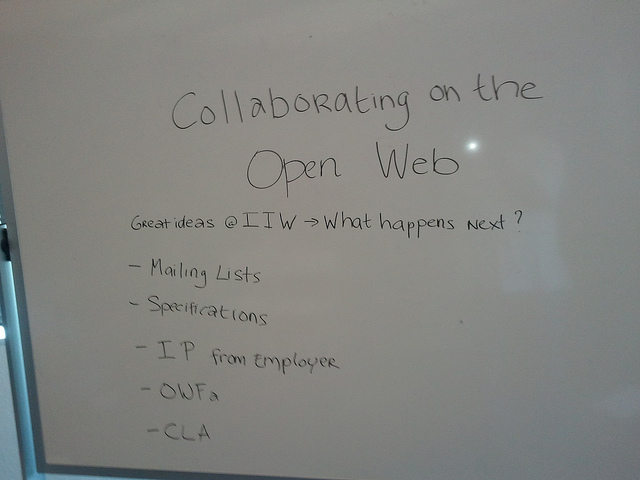 Collaborating on the
Open Web
Great ideas @ IIW → What happens next?
- Mailing Lists
- Specifications
- IP from Employer
- OWFa
- CLA